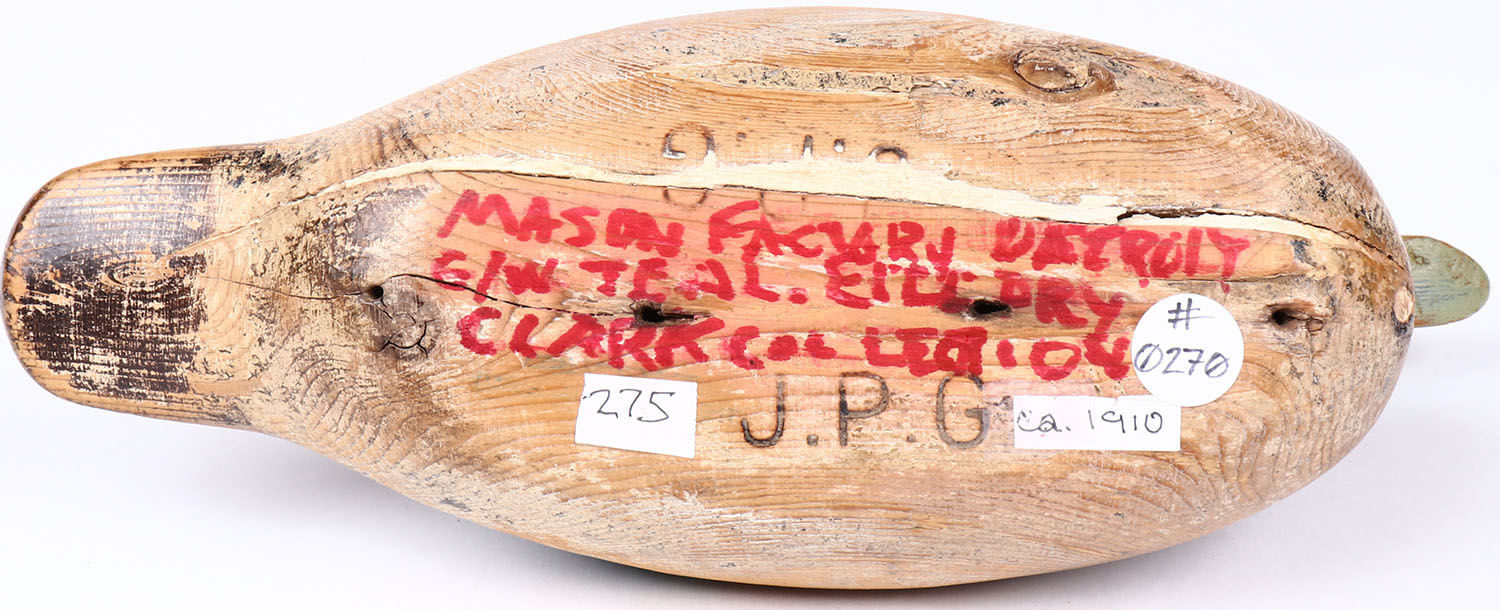 MASON FACTORY DETROIT
G/W TEAL.
CLARK COLLECTION
#
0270
275
J.P.G
ca. 1910